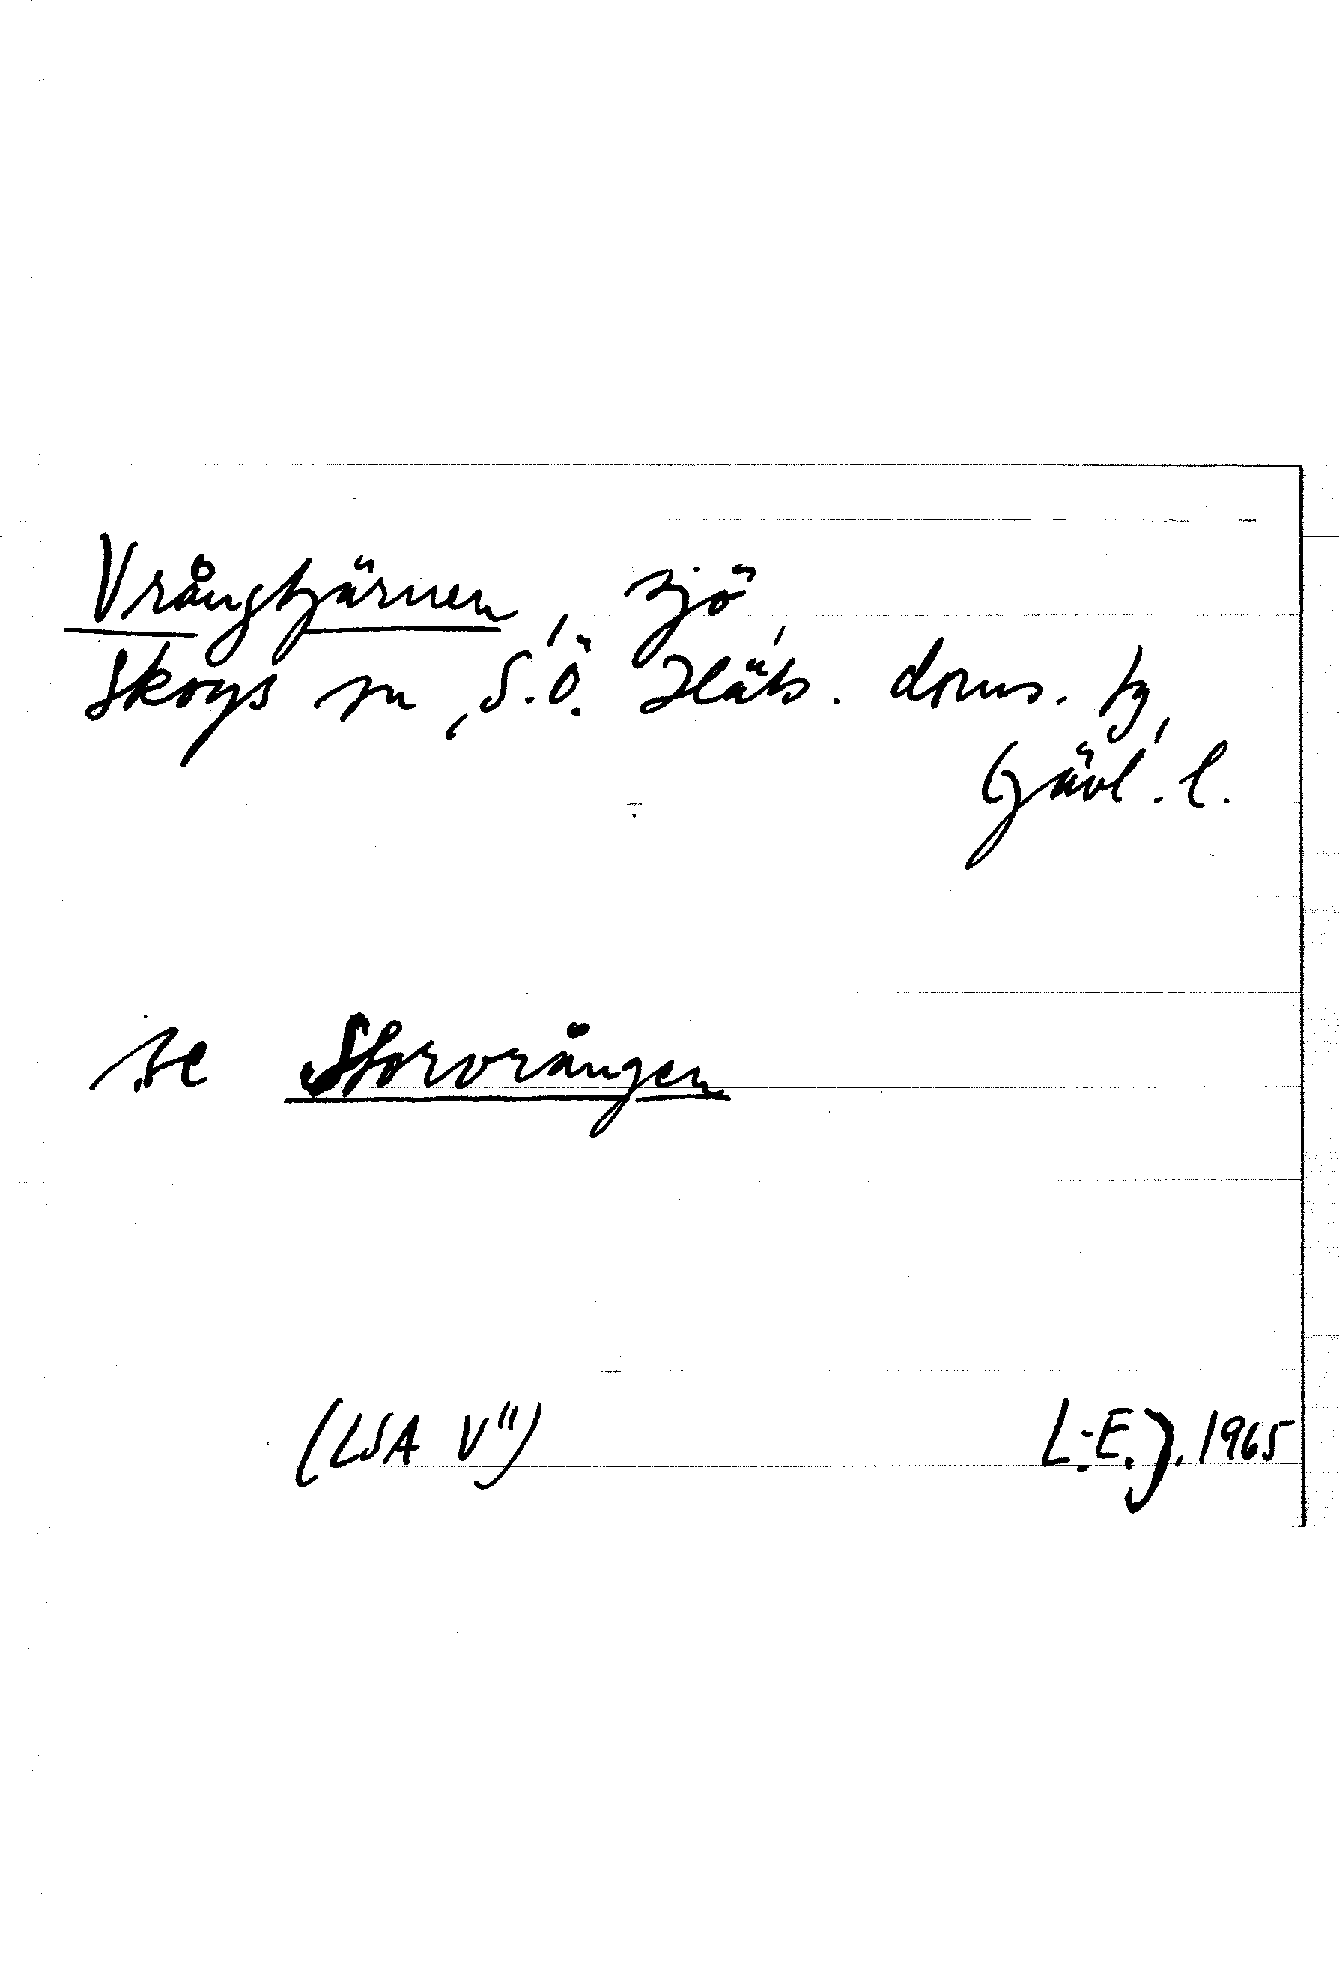 Vrångtjärnen, sjö
Skogs sn, S.Ö. Häls. doms. tg,
Gävl. l.
se Storvrången
(LSA V")
L-E.J. 1965